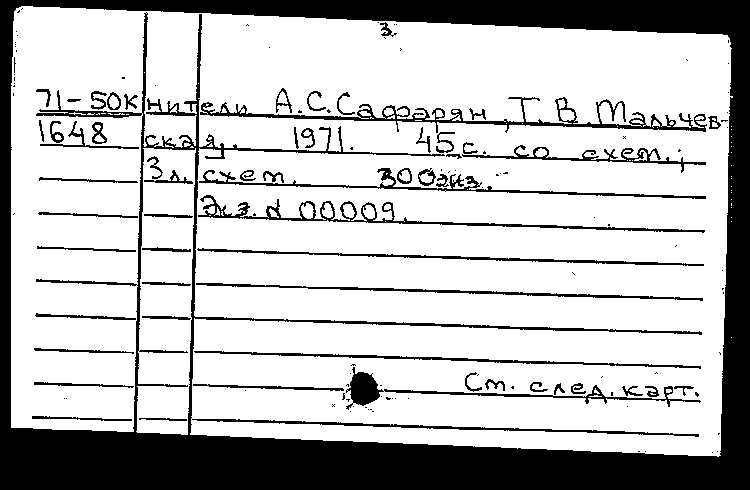 3.
71-50к нители А.С.Сафарян, Т.В.Мальчев-
1648 ская,. 1971. 45с. со схем.;
3л. схем. 300экз.
Экз. № 00009.
См. след. карт.